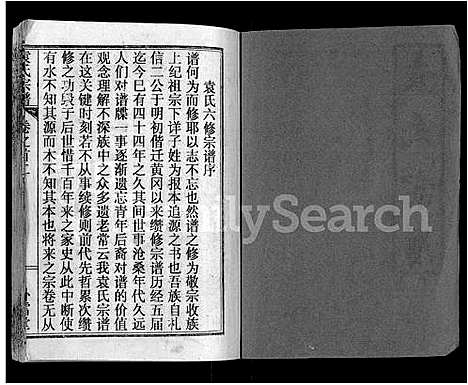 袁氏六修宗谱序
谱何为而修耶以志不忘也然谱之修为敬宗收族
上纪祖宗下详子姓为报本追源之书也吾族自札
信二公于明初偕迁黄冈以来缵修宗谱历经五届
迄今已四十四年之久其间世事沧桑年代久远
人们对谱牒一事逐渐遗忘青年后裔对谱的价值
观念理解不深族中之众多遗老常云我袁氏宗谱
在这关键时刻若不从事续修则前代先哲累次缵
修之功没于后世惜千百年来之家史从此中断使
有水不知其源而木不知其本也将来之宗卷无从
袁氏宗谱 卷之首
ilySearch